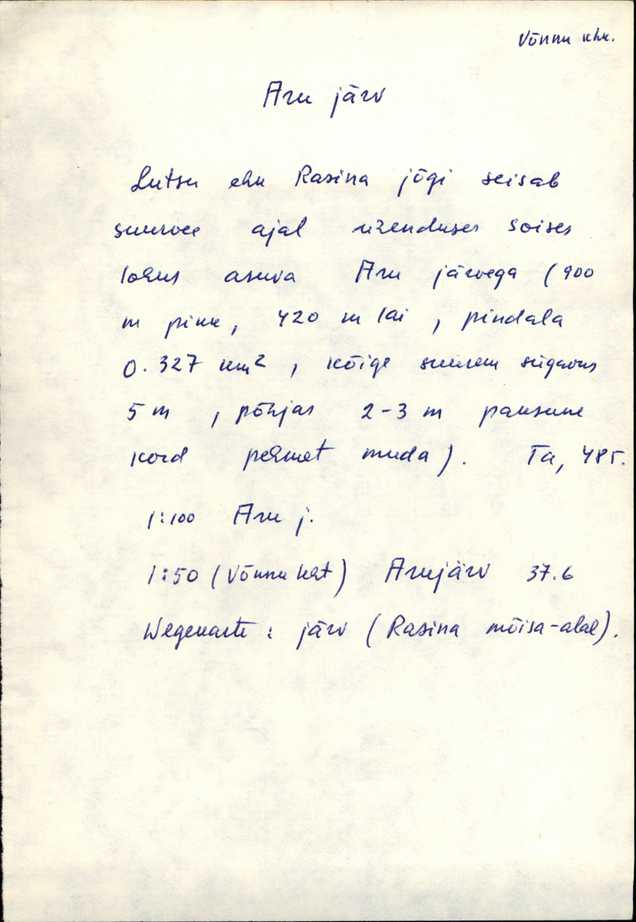 Võnnu khk.
Aru järv
Lutsu ehk Rasina jõgi seisab
suurvee ajal ühenduses soises
lohus asuva Aru järvega (900
m pikk, 420 m lai, pindala
0.327 km², kõige suurem sügavus
5 m, põhjas 2-3 m paksune
kord pehmet muda). Ta, 485.
1:100 Aru j.
1:50 (Võnnu leht) Arujärv 37.6
Wegekarte: järv (Rasina mõisa-alal).